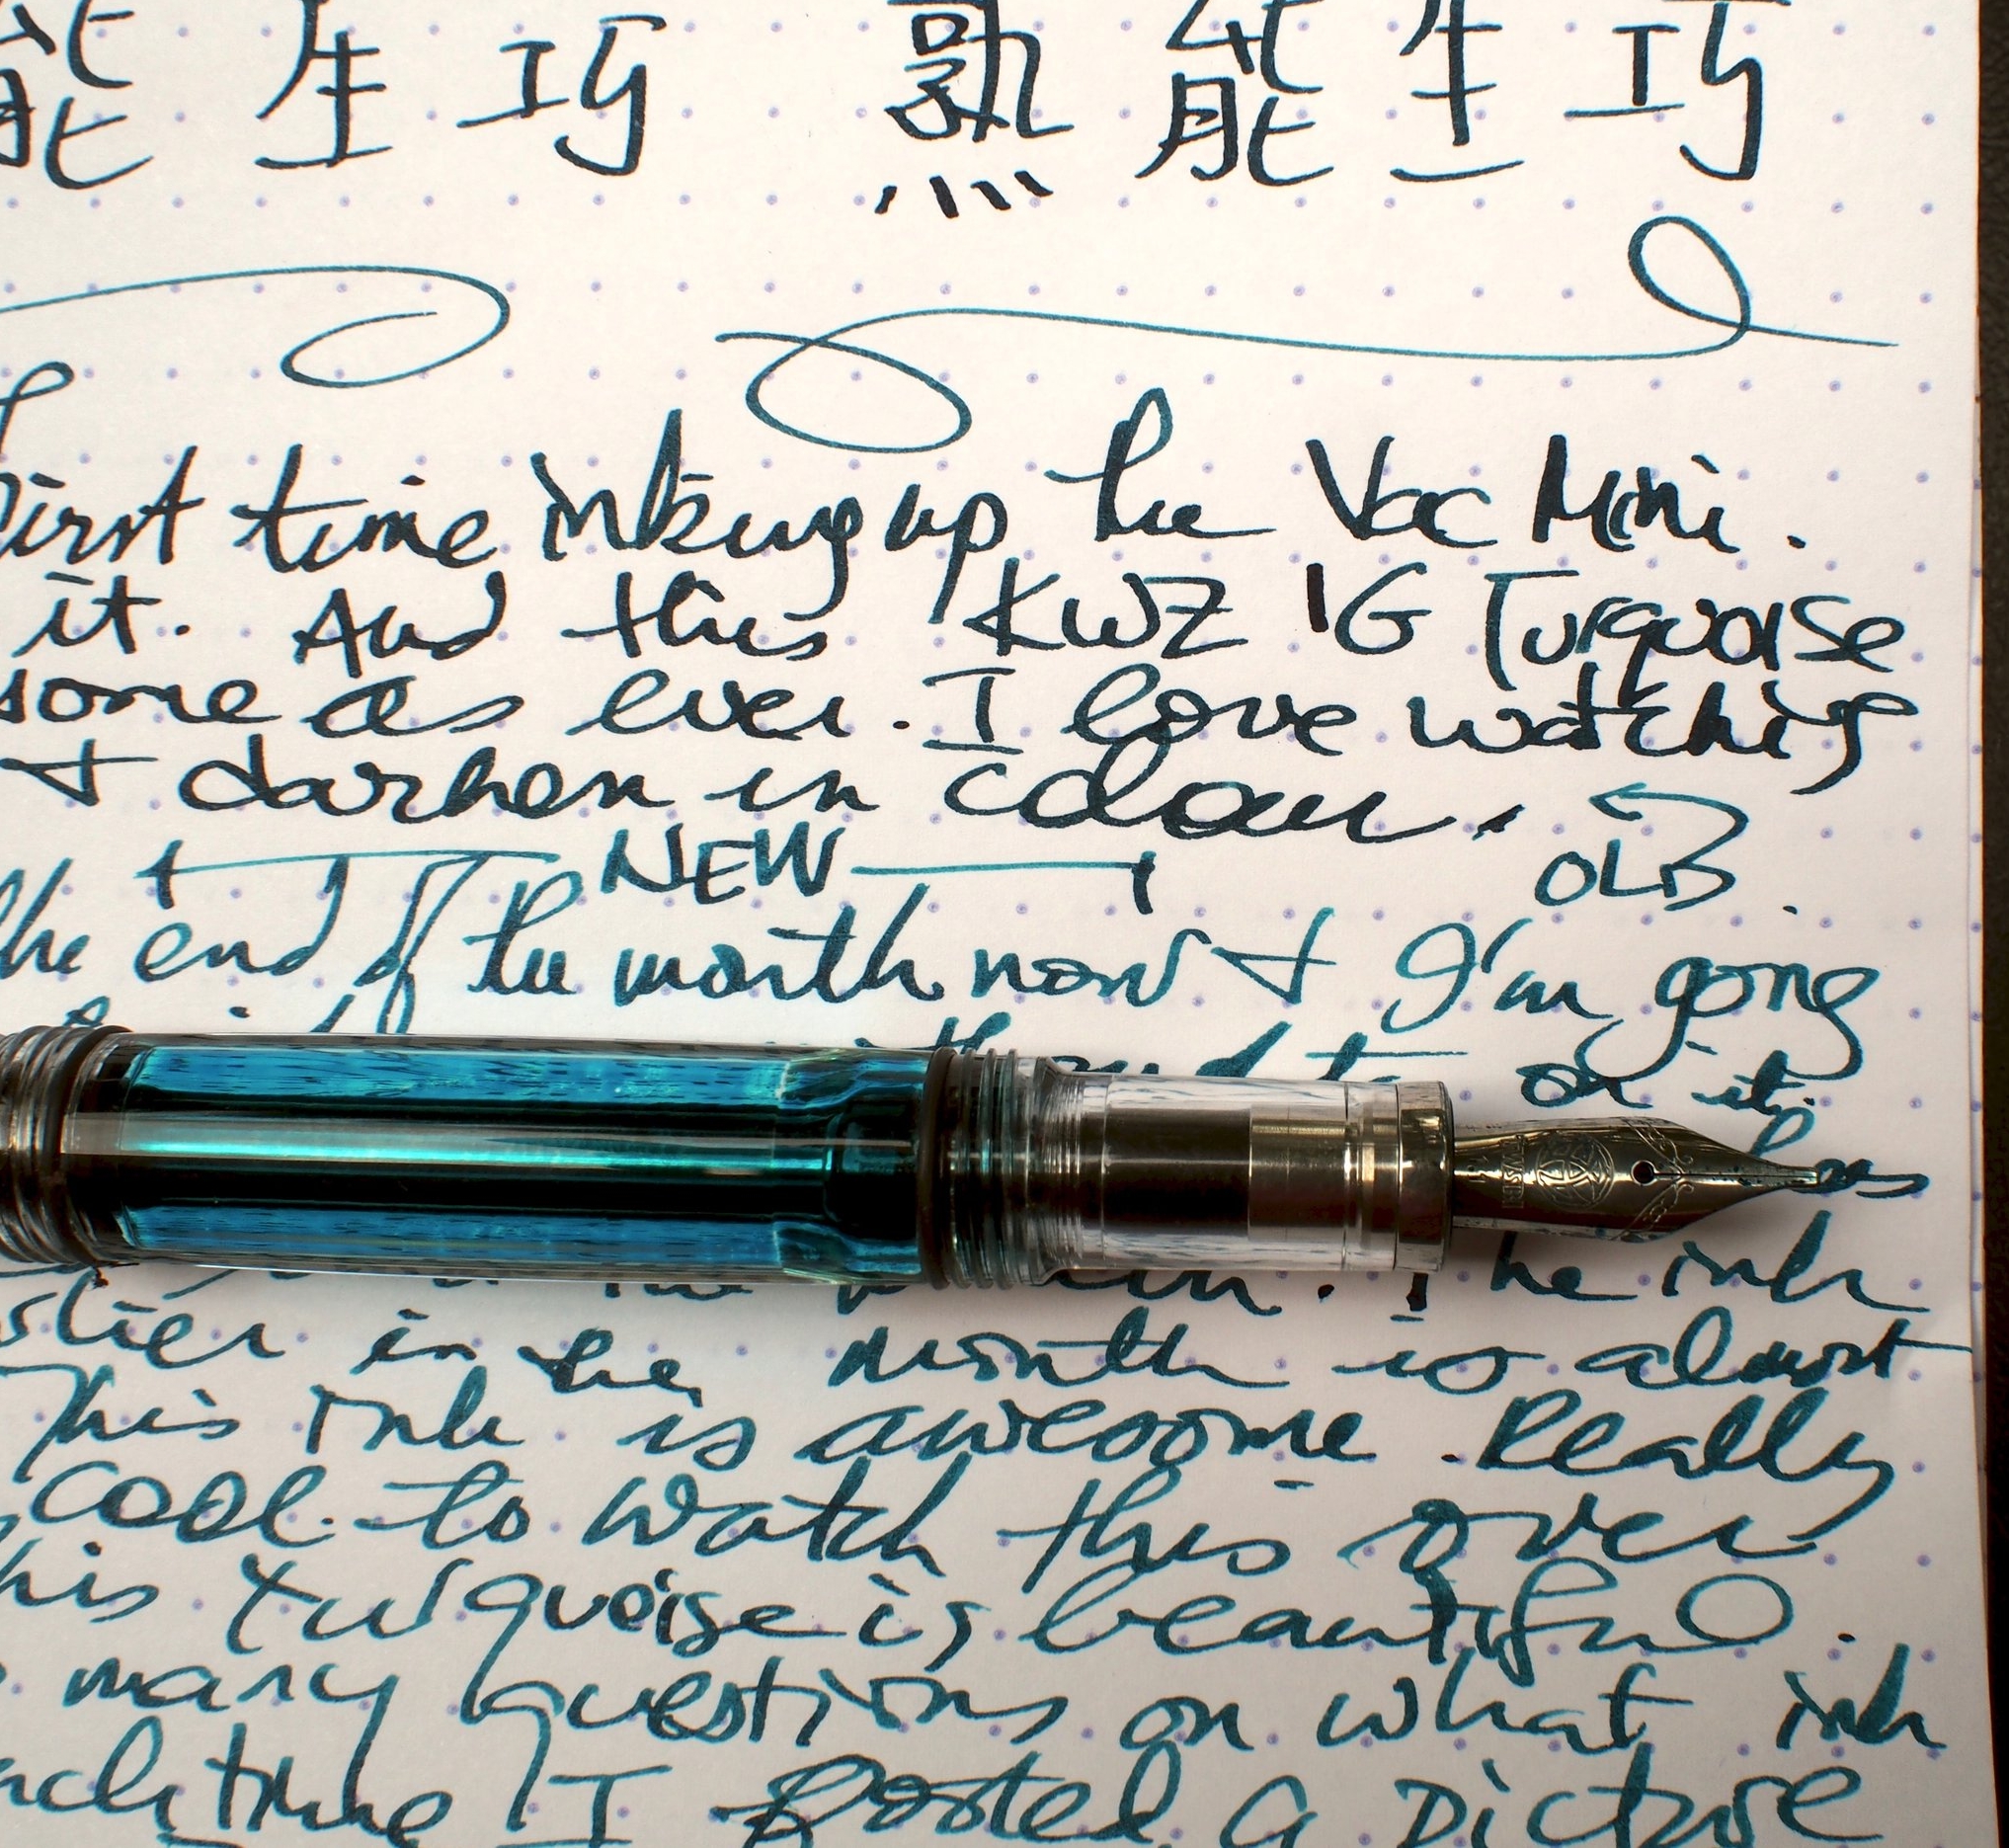 能 生 巧 熟 能 生 巧
first time inking up the Vac Mini.
it. And this KWZ IG Turquoise
some as ever. I love watching
+ darken in colour.
NEW OLD
the end of the month now + I'm going
on it.
has
TWSBI
The ink
in the month is almost
This ink is awesome. Really
cool to watch this over
his turquoise is beautiful.
many questions on what ink
time I posted a picture